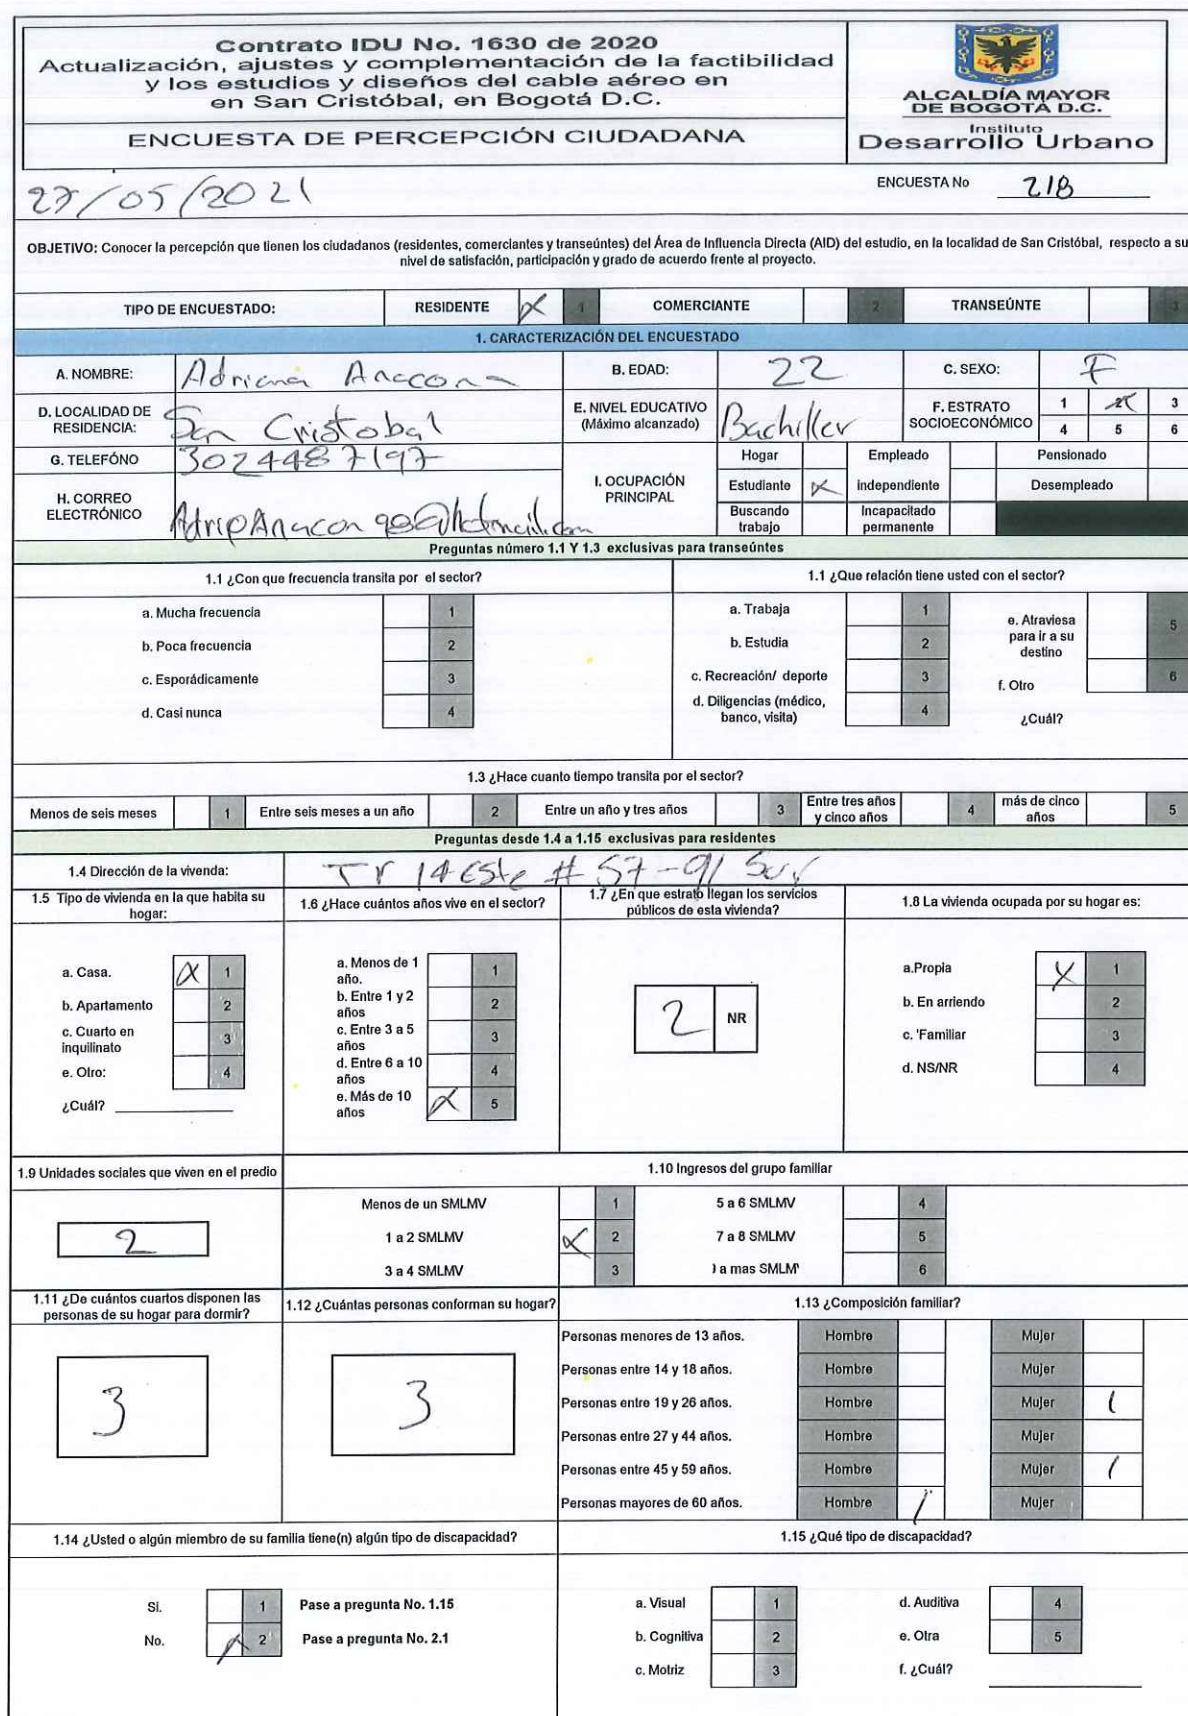 Contrato IDU No. 1630 de 2020
Actualización, ajustes y complementación de la factibilidad
y los estudios y diseños del cable aéreo en
en San Cristóbal, en Bogotá D.C.
ENCUESTA DE PERCEPCIÓN CIUDADANA
ALCALDÍA MAYOR
DE BOGOTÁ D.C.
Instituto
Desarrollo Urbano
27/05/2021
ENCUESTA No 218
OBJETIVO: Conocer la percepción que tienen los ciudadanos (residentes, comerciantes y transeúntes) del Área de Influencia Directa (AID) del estudio, en la localidad de San Cristóbal, respecto a su
nivel de satisfacción, participación y grado de acuerdo frente al proyecto.
TIPO DE ENCUESTADO: RESIDENTE X 1 COMERCIANTE 2 TRANSEÚNTE 3
1. CARACTERIZACIÓN DEL ENCUESTADO
A. NOMBRE: Adriana Anacona B. EDAD: 22 C. SEXO: F
D. LOCALIDAD DE RESIDENCIA: San Cristobal E. NIVEL EDUCATIVO (Máximo alcanzado) Bachiller F. ESTRATO SOCIOECONÓMICO 1 2 3
4 5 6
G. TELEFÓNO 3024487197 I. OCUPACIÓN PRINCIPAL Hogar Empleado Pensionado
H. CORREO ELECTRÓNICO Estudiante X independiente Desempleado
Buscando trabajo Incapacitado permanente
Preguntas número 1.1 Y 1.3 exclusivas para transeúntes
1.1 ¿Con que frecuencia transita por el sector?
a. Mucha frecuencia 1
b. Poca frecuencia 2
c. Esporádicamente 3
d. Casi nunca 4
1.1 ¿Que relación tiene usted con el sector?
a. Trabaja 1
b. Estudia 2
c. Recreación/ deporte 3
d. Diligencias (médico, banco, visita) 4
e. Atraviesa para ir a su destino 5
f. Otro 6
¿Cuál?
1.3 ¿Hace cuanto tiempo transita por el sector?
Menos de seis meses 1 Entre seis meses a un año 2 Entre un año y tres años 3 Entre tres años y cinco años 4 más de cinco años 5
Preguntas desde 1.4 a 1.15 exclusivas para residentes
1.4 Dirección de la vivenda: Tr 14 Este # 57-91 Sur
1.5 Tipo de vivienda en la que habita su hogar:
a. Casa. X 1
b. Apartamento 2
c. Cuarto en inquilinato 3
e. Otro: 4
¿Cuál?
1.6 ¿Hace cuántos años vive en el sector?
a. Menos de 1 año. 1
b. Entre 1 y 2 años 2
c. Entre 3 a 5 años 3
d. Entre 6 a 10 años 4
e. Más de 10 años X 5
1.7 ¿En que estrato llegan los servicios públicos de esta vivienda?
2 NR
1.8 La vivienda ocupada por su hogar es:
a.Propia X 1
b. En arriendo 2
c. 'Familiar 3
d. NS/NR 4
1.9 Unidades sociales que viven en el predio
2
1.10 Ingresos del grupo familiar
Menos de un SMLMV 1 5 a 6 SMLMV 4
1 a 2 SMLMV X 2 7 a 8 SMLMV 5
3 a 4 SMLMV 3 a mas SMLM 6
1.11 ¿De cuántos cuartos disponen las personas de su hogar para dormir?
3
1.12 ¿Cuántas personas conforman su hogar?
3
1.13 ¿Composición familiar?
Personas menores de 13 años. Hombre Mujer
Personas entre 14 y 18 años. Hombre Mujer
Personas entre 19 y 26 años. Hombre Mujer 1
Personas entre 27 y 44 años. Hombre Mujer
Personas entre 45 y 59 años. Hombre Mujer 1
Personas mayores de 60 años. Hombre 1 Mujer
1.14 ¿Usted o algún miembro de su familia tiene(n) algún tipo de discapacidad?
Si. 1 Pase a pregunta No. 1.15
No. X 2 Pase a pregunta No. 2.1
1.15 ¿Qué tipo de discapacidad?
a. Visual 1 d. Auditiva 4
b. Cognitiva 2 e. Otra 5
c. Motriz 3 f. ¿Cuál?